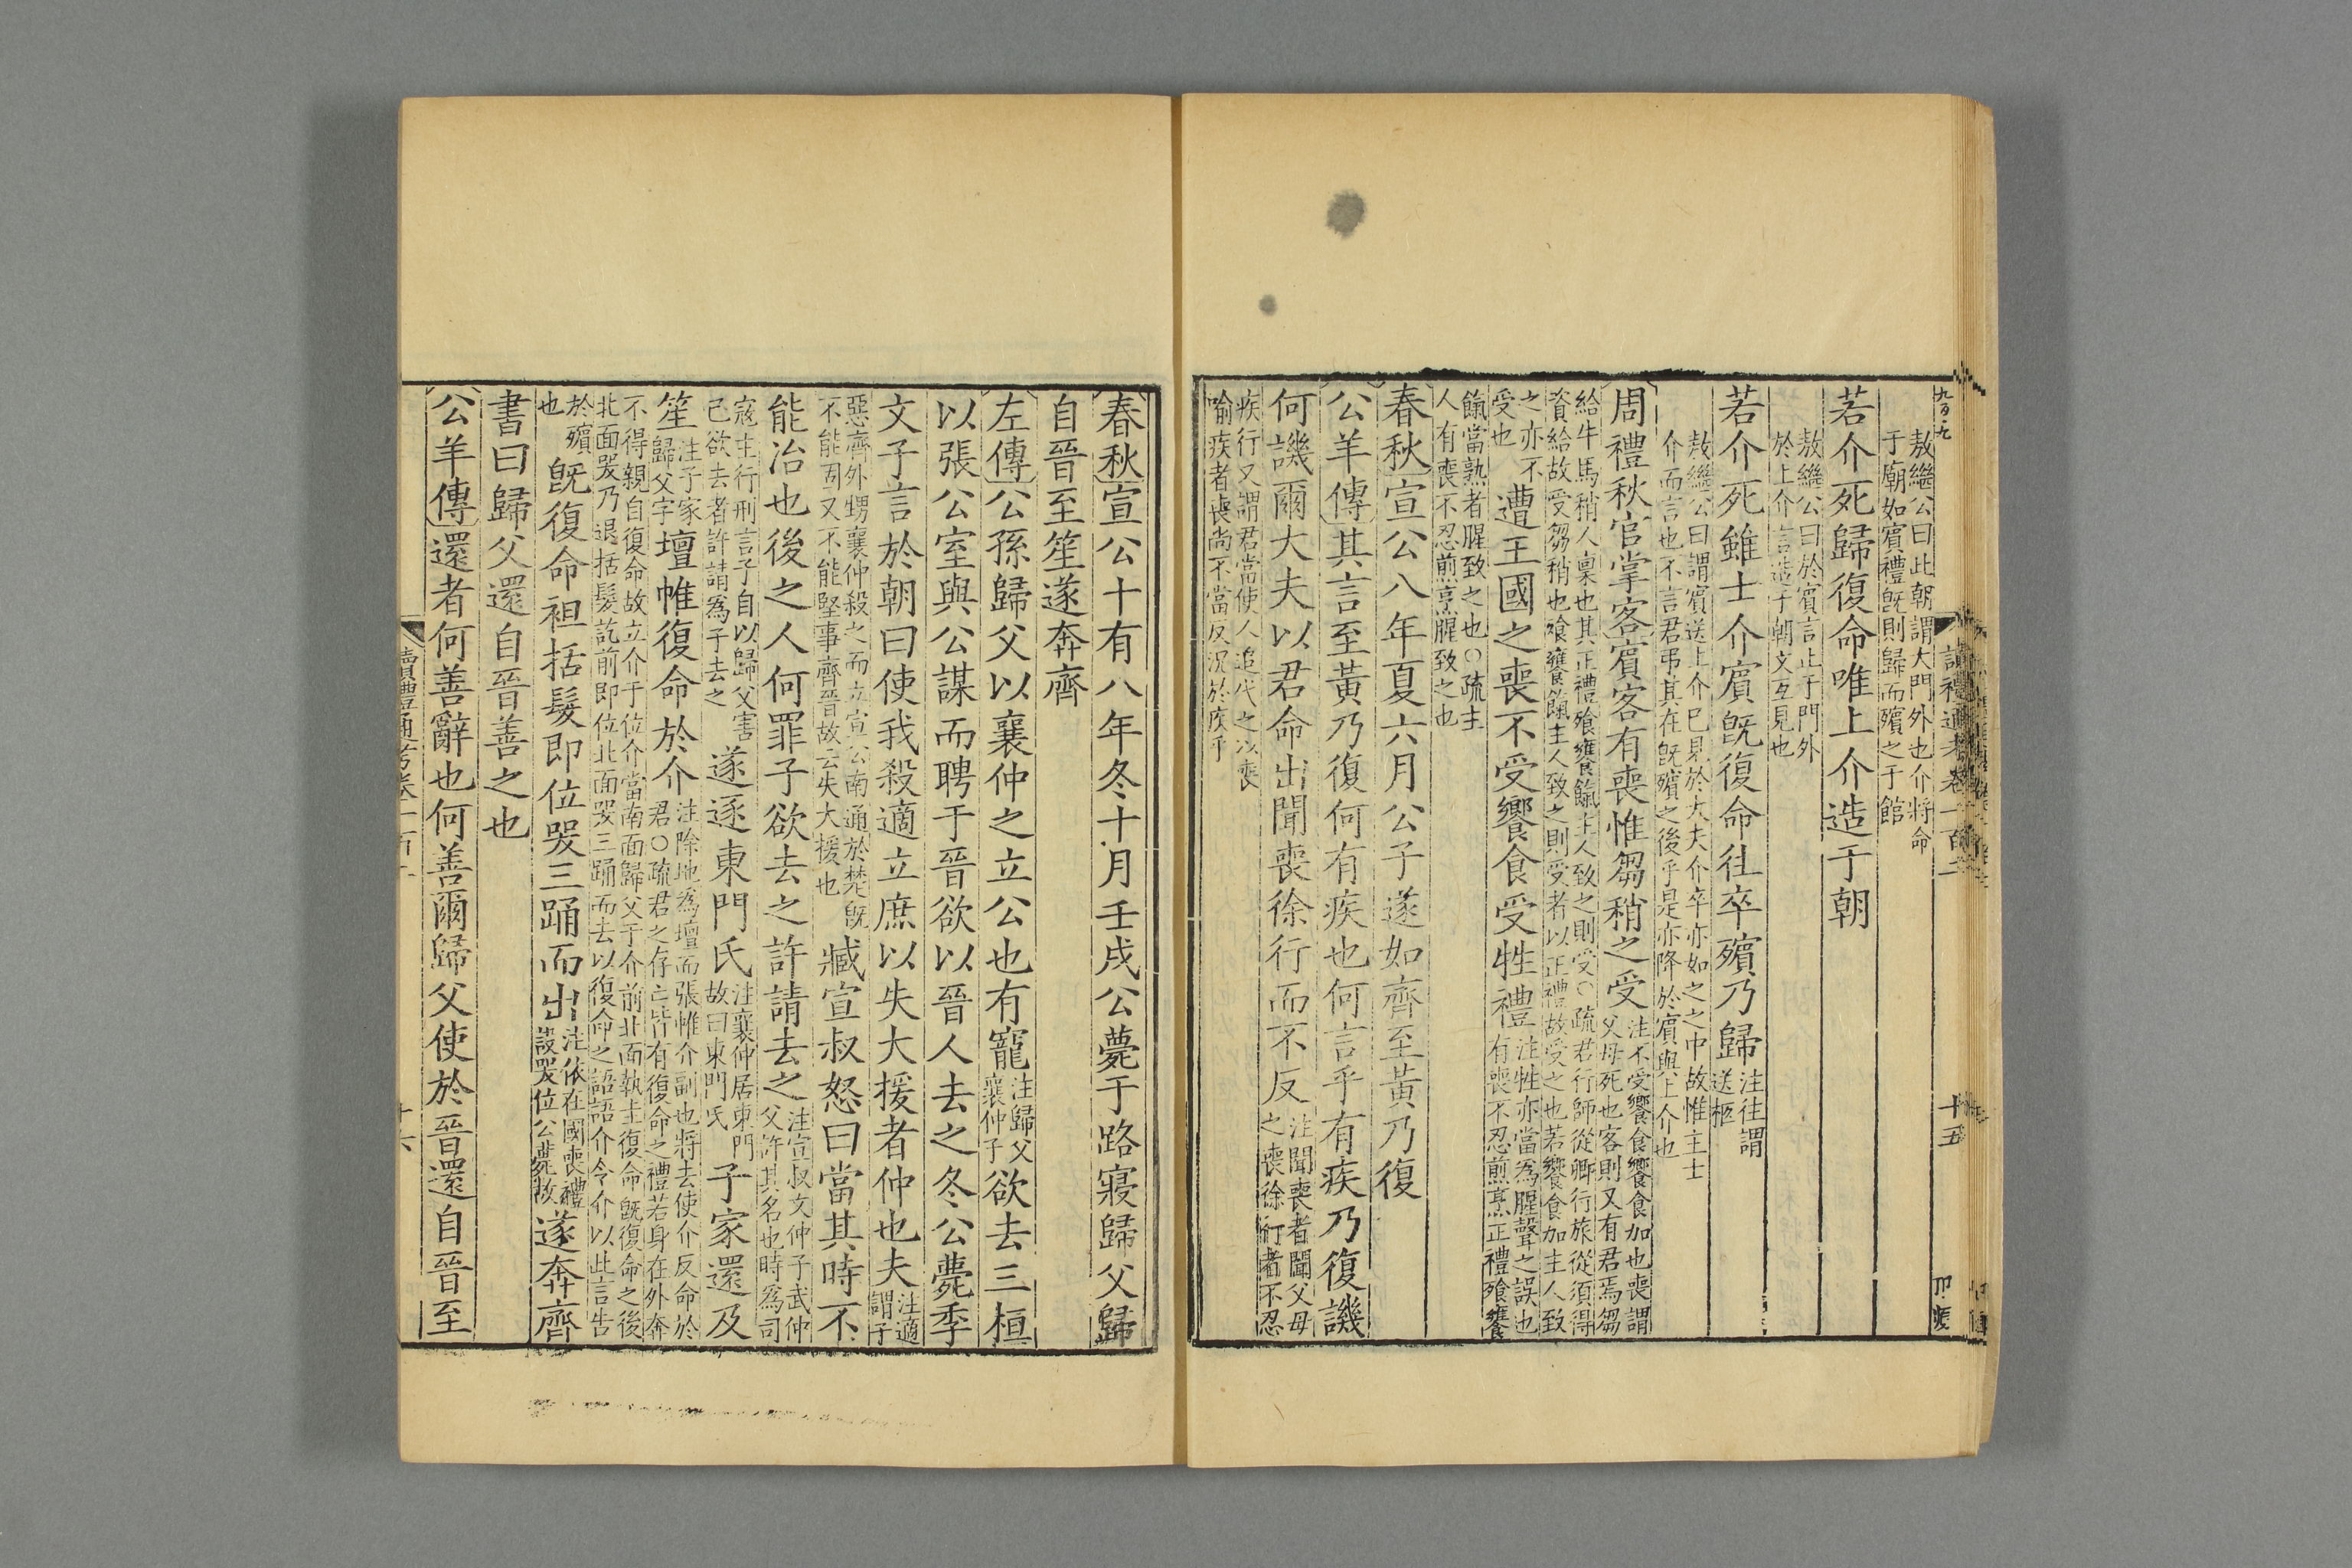 九百九
讀禮通考卷一百十
十五
敖繼公曰此朝謂大門外也介將命
于廟如賓禮旣則歸而殯之于館
若介死歸復命唯上介造于朝
敖繼公曰於賓言止于門外
於上介言造于朝文互見也
若介死雖士介賓旣復命往卒殯乃歸注往謂送柩
敖繼公曰謂賓送上介已見於大夫介卒亦如之之中故惟主士
介而言也不言君弔其在旣殯之後乎是亦降於賓與上介也
周禮秋官掌客賓客有喪惟芻稍之受注不受饗食饗食加也喪謂父母死也客則又有君焉芻
給牛馬稍人稟也其正禮飱饔餼主人致之則受○疏君行師從卿行旅從須得
資給故受芻稍也飱饔餼主人致之則受者以正禮故受之也若饗食加主人致
之亦不受也遭王國之喪不受饗食受牲禮注牲亦當爲腥聲之誤也有喪不忍煎烹正禮飱饔
餼當熟者腥致之也○疏主
人有喪不忍煎烹腥致之也
春秋宣公八年夏六月公子遂如齊至黃乃復
公羊傳其言至黃乃復何有疾也何言乎有疾乃復譏
何譏爾大夫以君命出聞喪徐行而不反注聞喪者聞父母之喪徐行者不忍
疾行又謂君當使人追代之以喪
喻疾者喪尚不當反況於疾乎
春秋宣公十有八年冬十月壬戌公薨于路寢歸父歸
自晉至笙遂奔齊
左傳公孫歸父以襄仲之立公也有寵注歸父襄仲子欲去三桓
以張公室與公謀而聘于晉欲以晉人去之冬公薨季
文子言於朝曰使我殺適立庶以失大援者仲也夫注適謂子
惡齊外甥襄仲殺之而立宣公南通於楚旣
不能固又不能堅事齊晉故云失大援也臧宣叔怒曰當其時不
能治也後之人何罪子欲去之許請去之注宣叔文仲子武仲父許其名也時爲司
寇主行刑言子自以歸父害
己欲去者許請爲子去之遂逐東門氏注襄仲居東門故曰東門氏子家還及
笙注子家歸父字壇帷復命於介注除地爲壇而張帷介副也將去使介反命於君○疏君之存亡皆有復命之禮若身在外奔
不得親自復命故立介于位介當南面歸父于介前北面執圭復命旣復命之後
北面哭乃退括髮訖前即位北面哭三踊而去以復命之語語介令介以此言告
於殯也旣復命袒括髮即位哭三踊而出注依在國喪禮設哭位公薨故遂奔齊
書曰歸父還自晉善之也
公羊傳還者何善辭也何善爾歸父使於晉還自晉至
讀禮通考卷一百十
十六